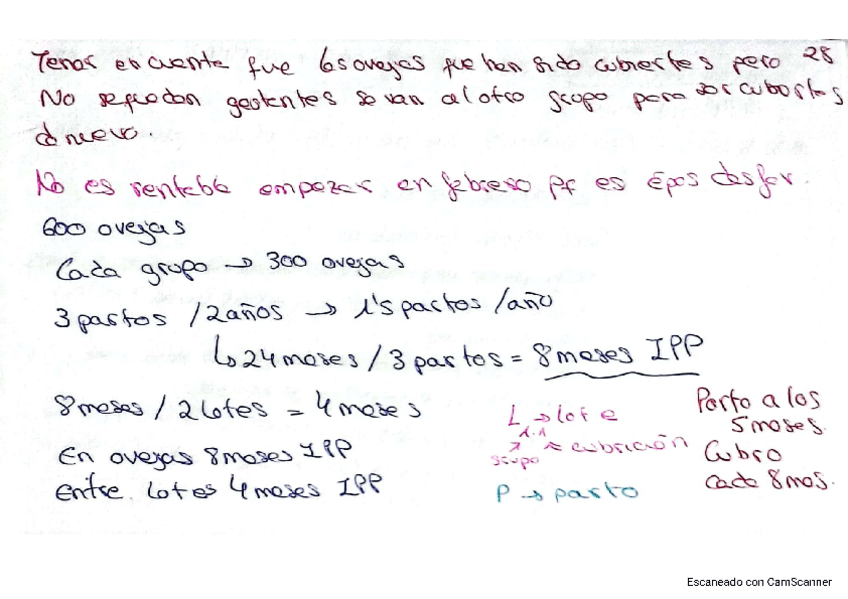 Tener en cuenta que las ovejas que han sido cubiertas pero 28
No se quedan gestantes se van al otro grupo para ser cubiertas
de nuevo.
No es rentable empezar en febrero pq es época desfav.
600 ovejas
Cada grupo → 300 ovejas
3 partos / 2 años → 1's partos / año
↳ 24 meses / 3 partos = 8 meses IPP
8 meses / 2 lotes = 4 meses
En ovejas 8 meses IPP
Entre lotes 4 meses IPP
L → lote
1.1
grupo
cubrición
P → parto
Parto a los
5 meses.
Cubro
cada 8 mes.
Escaneado con CamScanner